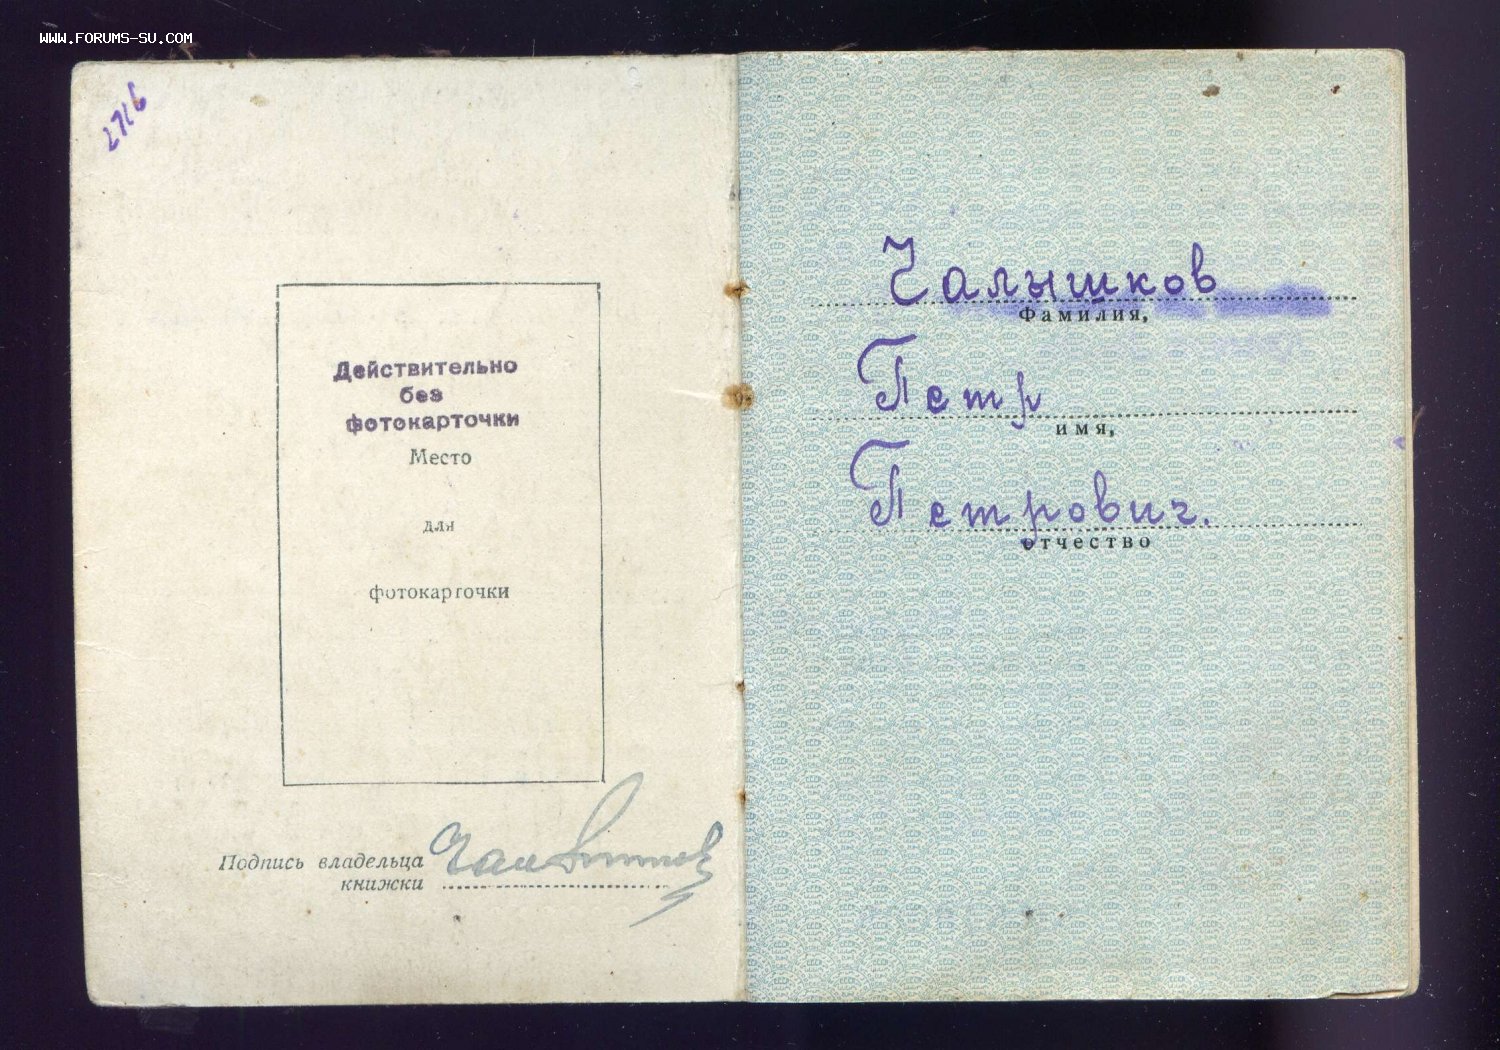 WWW.FORUMS-SU.COM
2716
Действительно
без
фотокарточки
Место
для
фотокарточки
Подпись владельца
книжки
Чалышков
Фамилия,
Петр
имя,
Петрович.
отчество